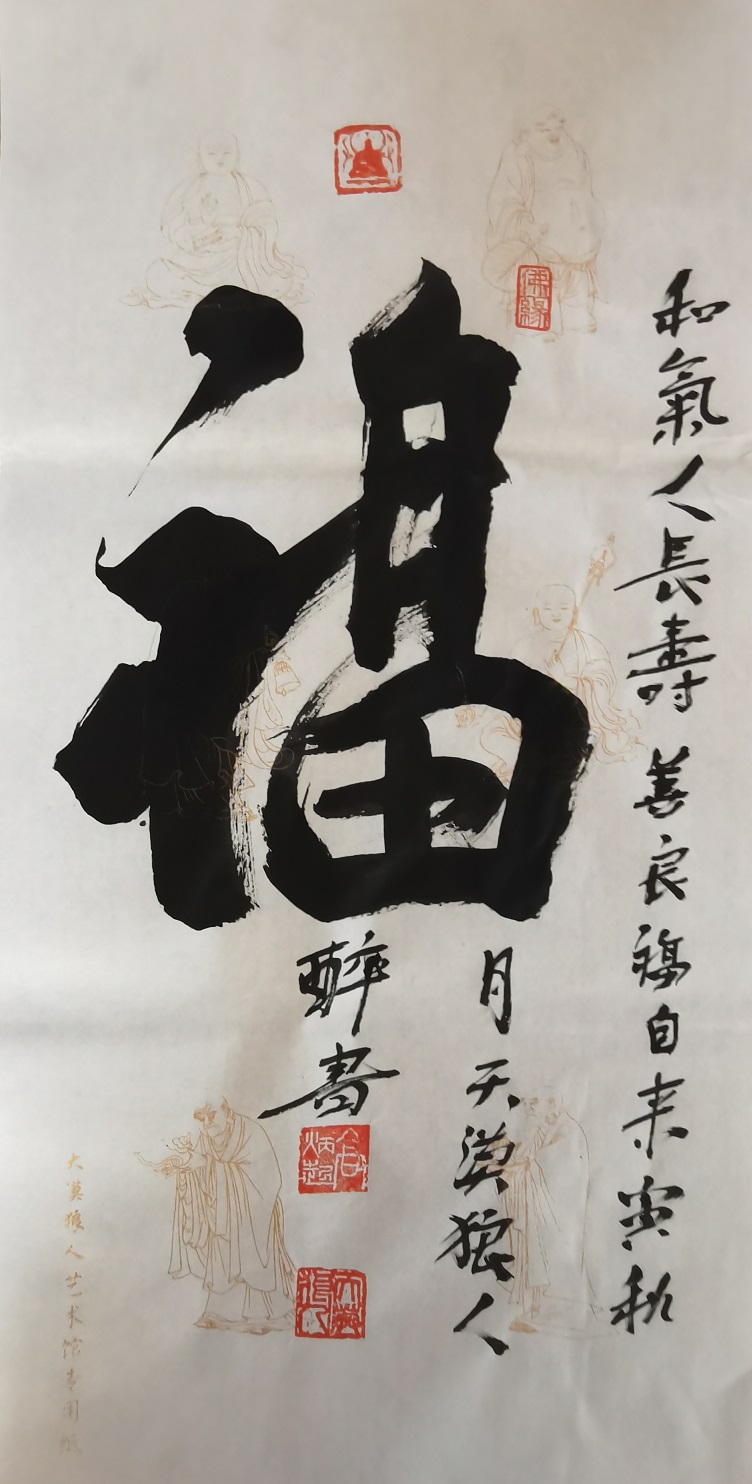 福
佛緣
和氣人長壽 善良福自来 寅秋
月 天漠狼人
醉書
大漠狼人
大漠狼人艺术馆专用纸